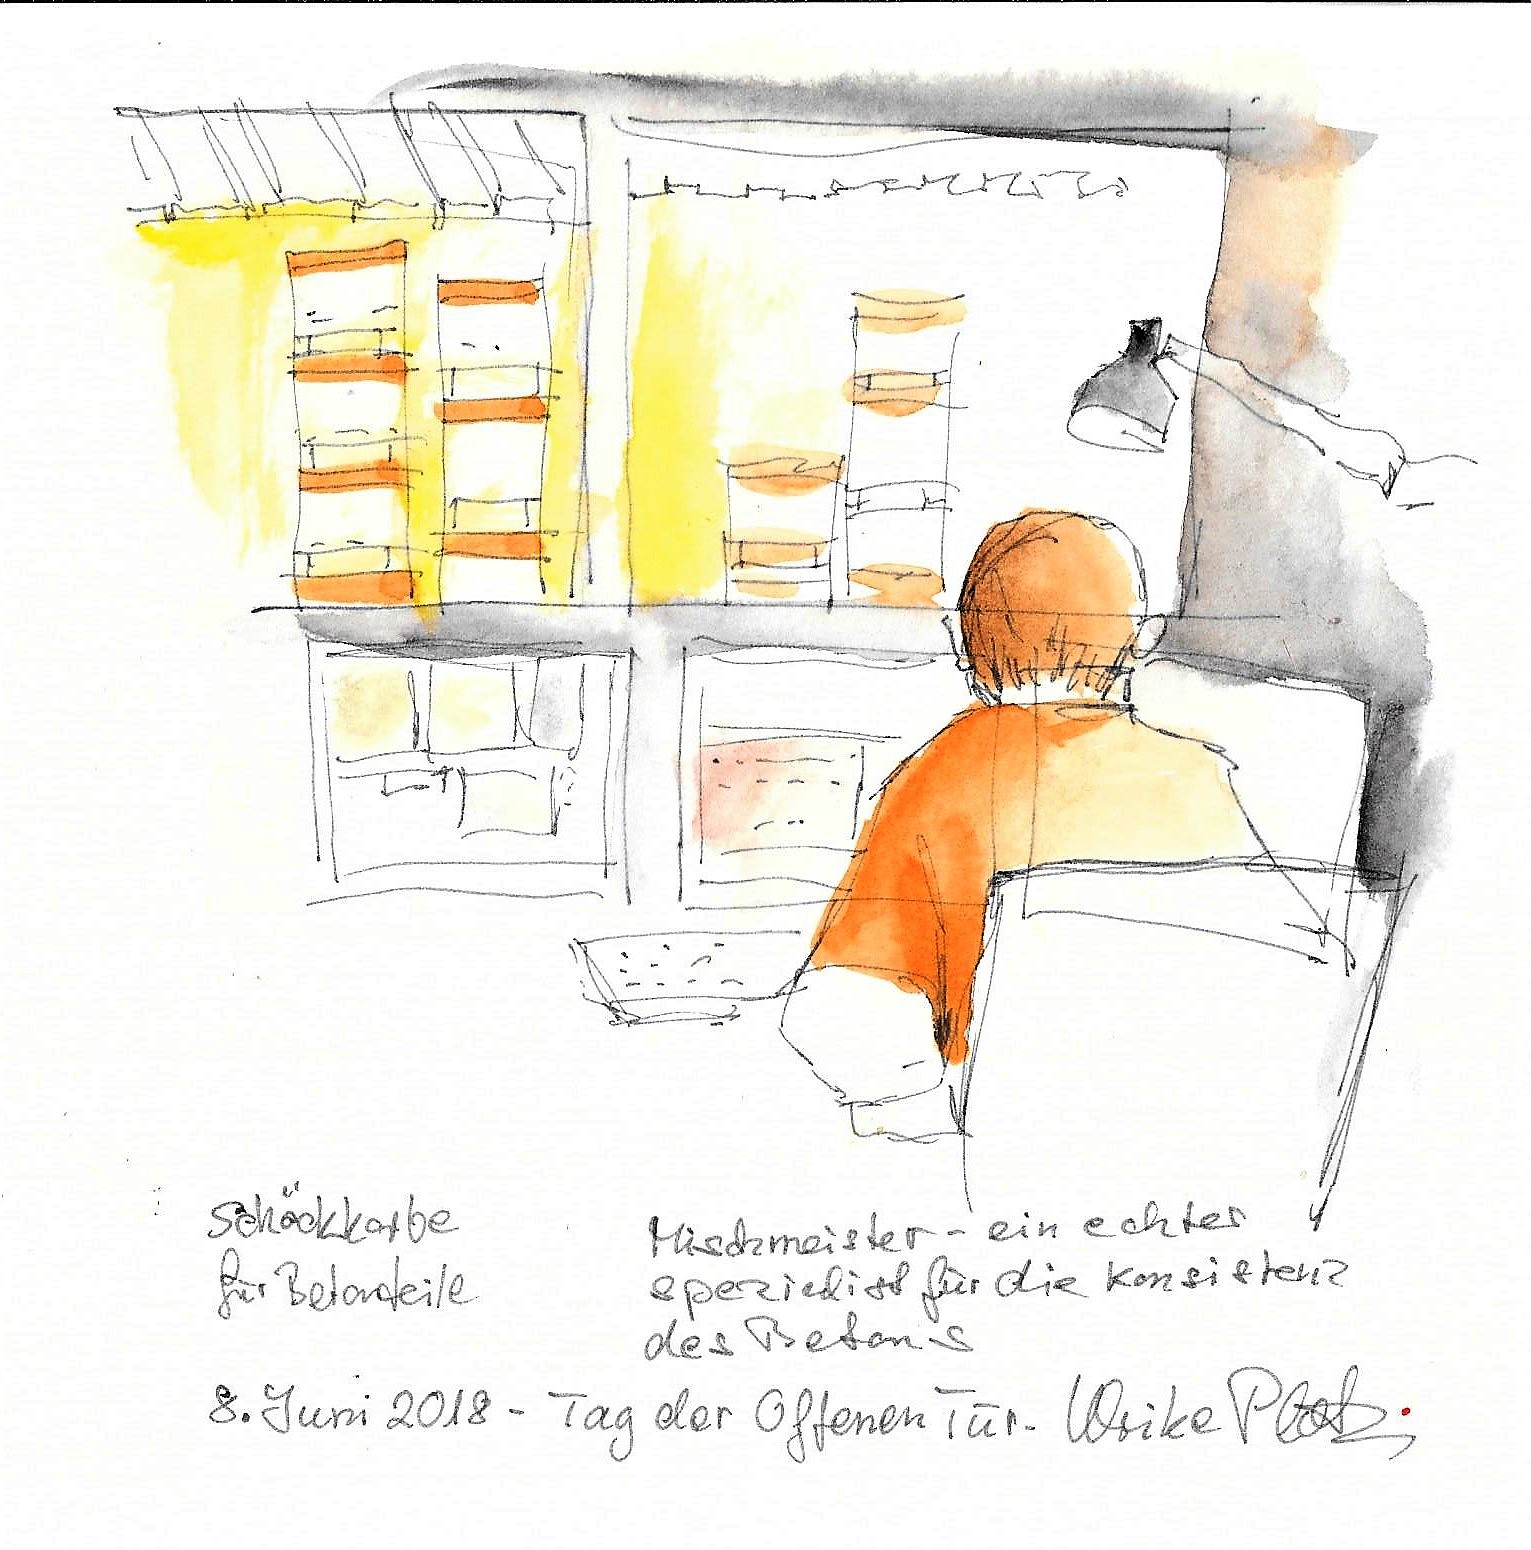 Schöckkorbe
für Betonteile
Mischmeister - ein echter
spezialist für die Konsistenz
des Betons
8. Juni 2018 - Tag der Offenen Tür. Ulrike Plötz